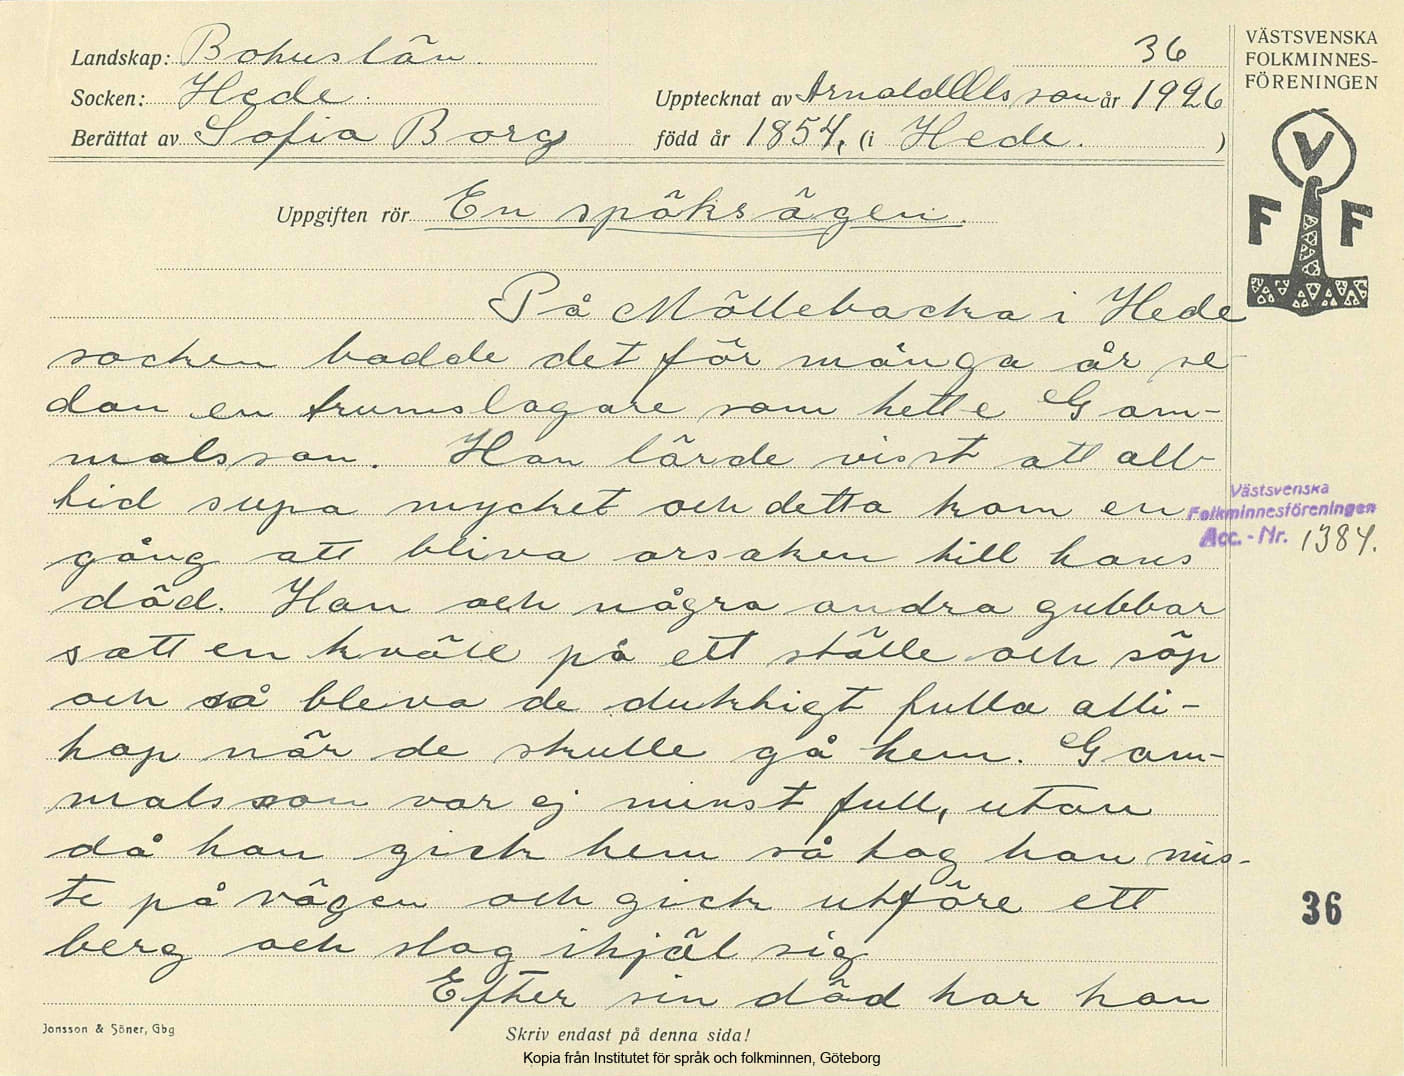 Landskap: Bohuslän. 36
Socken: Hede. Upptecknat av Arnold Olsson år 1926
Berättat av Sofia Borg född år 1854, (i Hede. )
Uppgiften rör En spöksägen.
På Möllebacka i Hede
socken bodde det för många år se-
dan en trumslagare som hette Gam-
malsson. Han lärde visst att all-
tid supa mycket och detta kom en
gång att bliva orsaken till hans
död. Han och några andra gubbar
satt en kväll på ett ställe och söp
och så bleva de duktigt fulla alli-
hop när de skulle gå hem. Gam-
malsson var ej minst full, utan
då han gick hem så tog han mis-
te på vägen och gick utföre ett
berg och slog ihjäl sig
Efter sin död har han
Jonsson & Söner, Gbg
Skriv endast på denna sida!
Kopia från Institutet för språk och folkminnen, Göteborg
VÄSTSVENSKA
FOLKMINNES-
FÖRENINGEN
V
F F
Västsvenska
Folkminnesföreningen
Acc.-Nr. 1384.
36